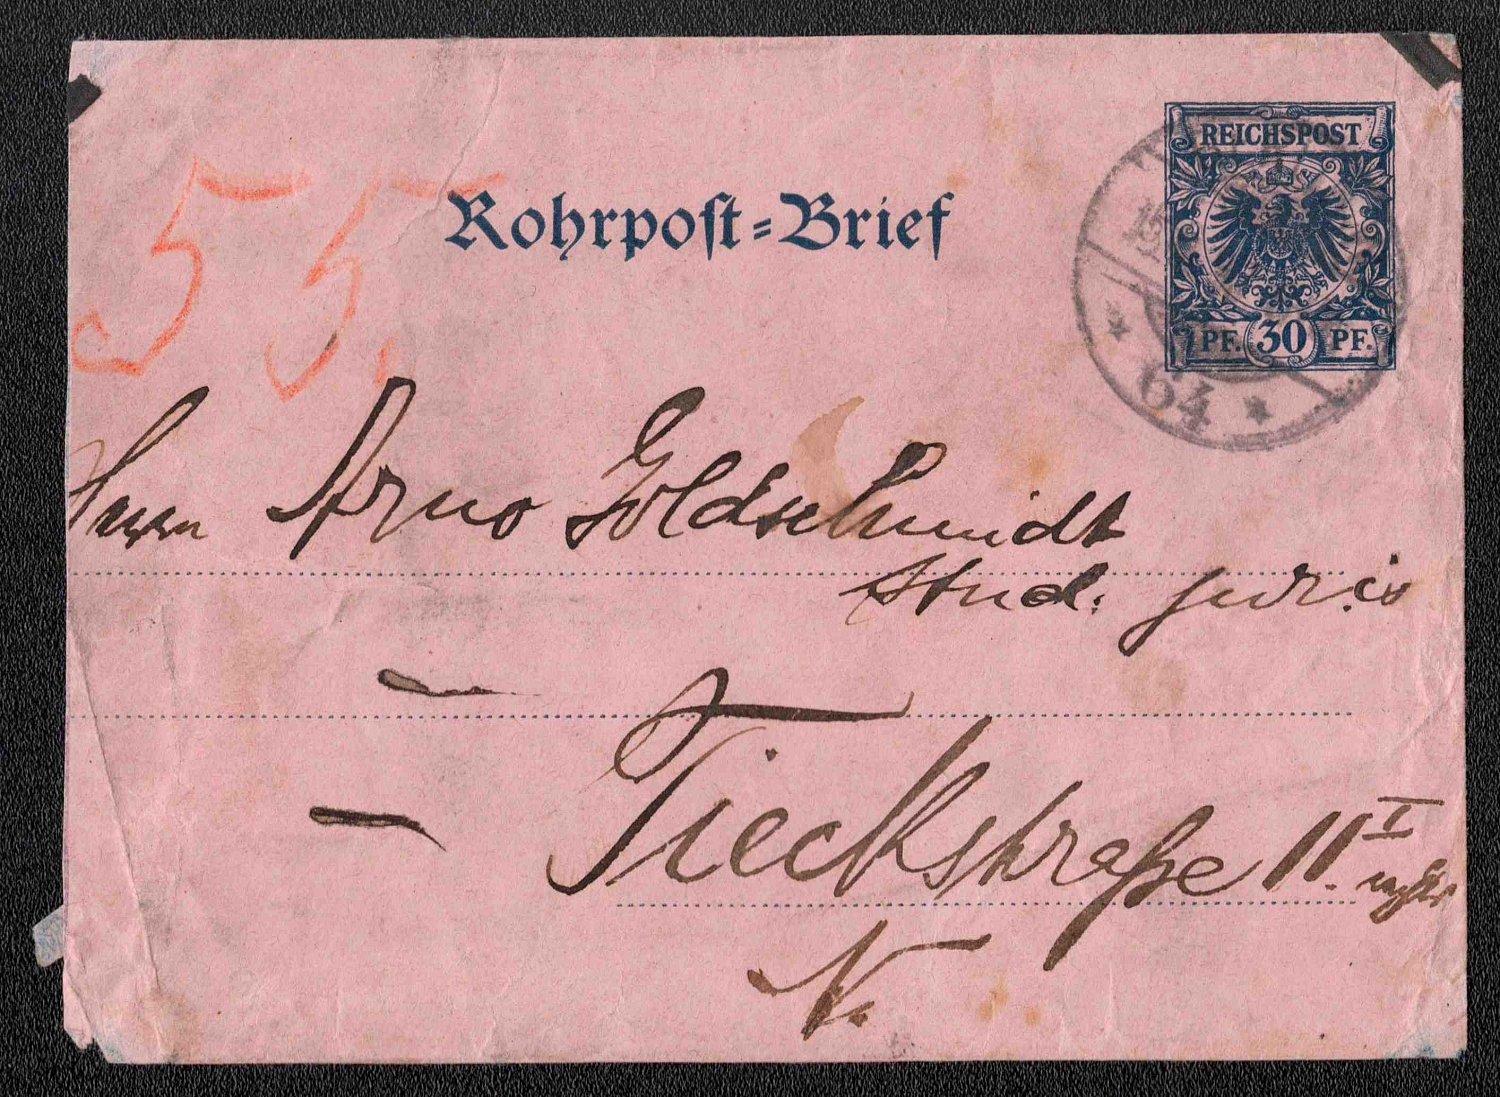 REICHSPOST
PF. 30 PF.
Rohrpoſt=Brief
55.
64
Herrn Arno Goldschmidt
stud. juris
Tieckstraße 11. I
N.